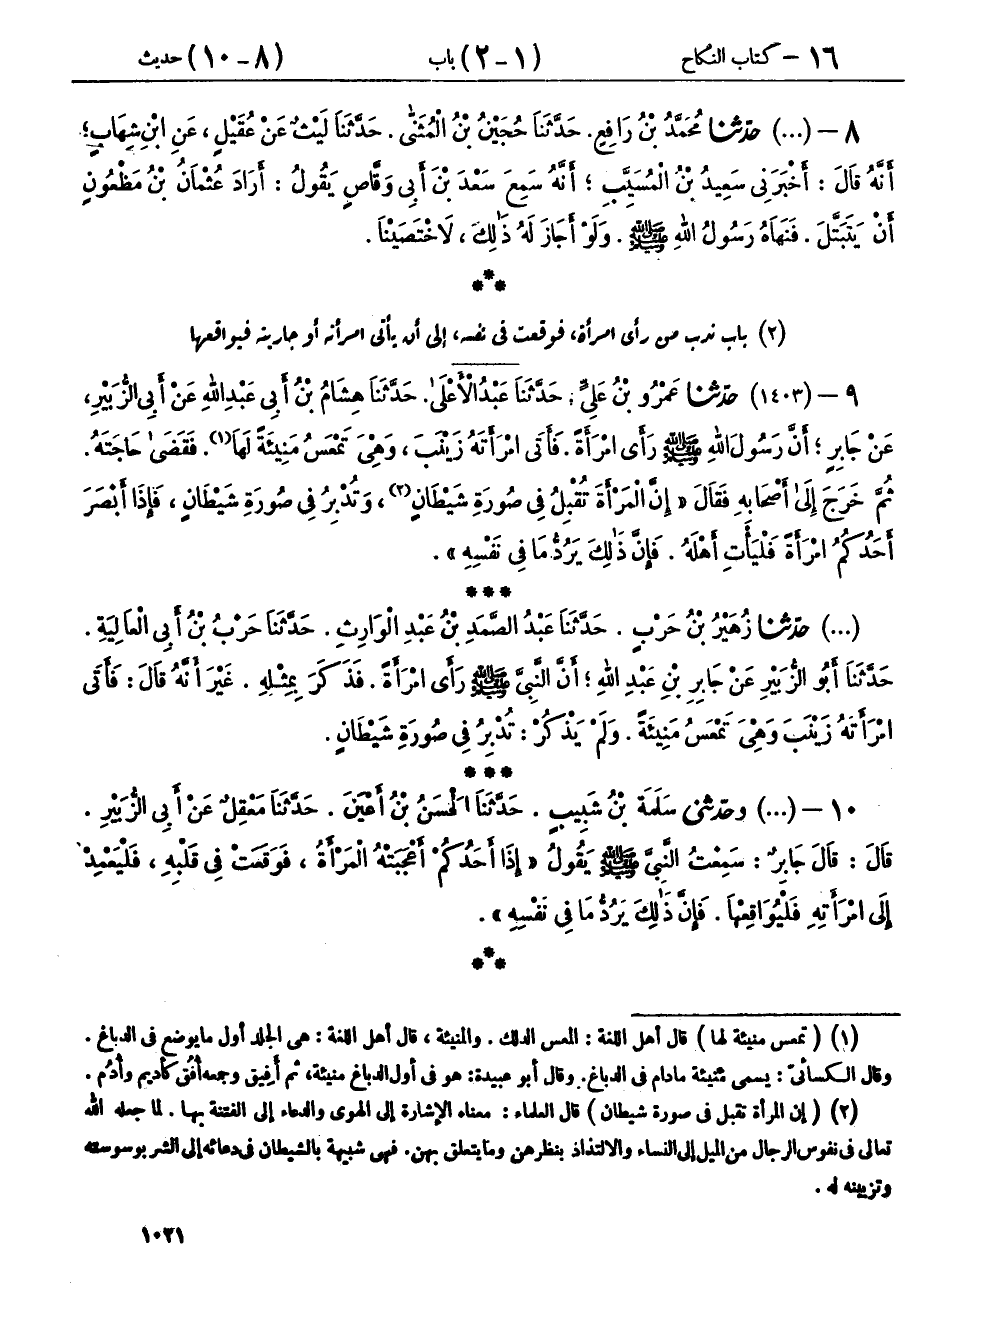 ١٦ – كتاب النكاح (١ – ٢) باب (٨ – ١٠) حديث
٨ – (...) حدّثنا مُحَمَّدُ بْنُ رَافِعٍ. حَدَّثَنَا حُجَيْنُ بْنُ الْمُثَنَّى. حَدَّثَنَا لَيْثٌ عَنْ عُقَيْلٍ، عَنِ ابْنِ شِهَابٍ؛
أَنَّهُ قَالَ : أَخْبَرَنِي سَعِيدُ بْنُ الْمُسَيَّبِ ؛ أَنَّهُ سَمِعَ سَعْدَ بْنَ أَبِي وَقَّاصٍ يَقُولُ : أَرَادَ عُثْمَانُ بْنُ مَظْعُونٍ
أَنْ يَتَبَتَّلَ . فَنَهَاهُ رَسُولُ اللهِ ﷺ . وَلَوْ أَجَازَ لَهُ ذَٰلِكَ ، لَاخْتَصَيْنَا .
***
(٢) باب ندب من رأى امرأة، فوقعت فى نفسه، إلى أن يأتى امرأته أو جاريته فيواقعها
٩ – (١٤٠٣) حدّثنا عَمْرُو بْنُ عَلِيٍّ. حَدَّثَنَا عَبْدُ الْأَعْلَىٰ. حَدَّثَنَا هِشَامُ بْنُ أَبِي عَبْدِ اللهِ عَنْ أَبِي الزُّبَيْرِ،
عَنْ جَابِرٍ ؛ أَنَّ رَسُولَ اللهِ ﷺ رَأَى امْرَأَةً . فَأَتَى امْرَأَتَهُ زَيْنَبَ ، وَهْىَ تَمْعَسُ مَنِيئَةً لَهَا(١). فَقَضَىٰ حَاجَتَهُ.
ثُمَّ خَرَجَ إِلَىٰ أَصْحَابِهِ فَقَالَ « إِنَّ الْمَرْأَةَ تُقْبِلُ فِي صُورَةِ شَيْطَانٍ(٢) ، وَتُدْبِرُ فِي صُورَةِ شَيْطَانٍ ، فَإِذَا أَبْصَرَ
أَحَدُكُمُ امْرَأَةً فَلْيَأْتِ أَهْلَهُ . فَإِنَّ ذَٰلِكَ يَرُدُّ مَا فِي نَفْسِهِ » .
***
(...) حدّثنا زُهَيْرُ بْنُ حَرْبٍ . حَدَّثَنَا عَبْدُ الصَّمَدِ بْنُ عَبْدِ الْوَارِثِ . حَدَّثَنَا حَرْبُ بْنُ أَبِي الْعَالِيَةِ .
حَدَّثَنَا أَبُو الزُّبَيْرِ عَنْ جَابِرِ بْنِ عَبْدِ اللهِ ؛ أَنَّ النَّبِيَّ ﷺ رَأَى امْرَأَةً . فَذَكَرَ بِمِثْلِهِ . غَيْرَ أَنَّهُ قَالَ : فَأَتَى
امْرَأَتَهُ زَيْنَبَ وَهْىَ تَمْعَسُ مَنِيئَةً . وَلَمْ يَذْكُرْ : تُدْبِرُ فِي صُورَةِ شَيْطَانٍ .
***
١٠ – (...) وحدّثنى سَلَمَةُ بْنُ شَبِيبٍ . حَدَّثَنَا الْحَسَنُ بْنُ أَعْيَنَ . حَدَّثَنَا مَعْقِلٌ عَنْ أَبِي الزُّبَيْرِ .
قَالَ : قَالَ جَابِرٌ : سَمِعْتُ النَّبِيَّ ﷺ يَقُولُ « إِذَا أَحَدُكُمْ أَعْجَبَتْهُ الْمَرْأَةُ ، فَوَقَعَتْ فِي قَلْبِهِ ، فَلْيَعْمِدْ
إِلَى امْرَأَتِهِ فَلْيُوَاقِعْهَا . فَإِنَّ ذَٰلِكَ يَرُدُّ مَا فِي نَفْسِهِ » .
***
(١) ( تمعس منيئة لها ) قال أهل اللغة : المعس الدلك . والمنيئة ، قال أهل اللغة : هى الجلد أول مايوضع فى الدباغ .
وقال الكسائىّ : يسمى منيئة مادام فى الدباغ. وقال أبو عبيدة: هو فى أول الدباغ منيئة، ثم أَفِيق وجمعه أُفُق كأديم وأُدُم .
(٢) ( إن المرأة تقبل فى صورة شيطان ) قال العلماء : معناه الإشارة إلى الهوى والدعاء إلى الفتنة بها . لما جعله الله
تعالى فى نفوس الرجال من الميل إلى النساء والالتذاذ بنظرهن ومايتعلق بهن. فهى شبيهة بالشيطان فى دعائه إلى الشر بوسوسته
وتزيينه له .
١٠٢١